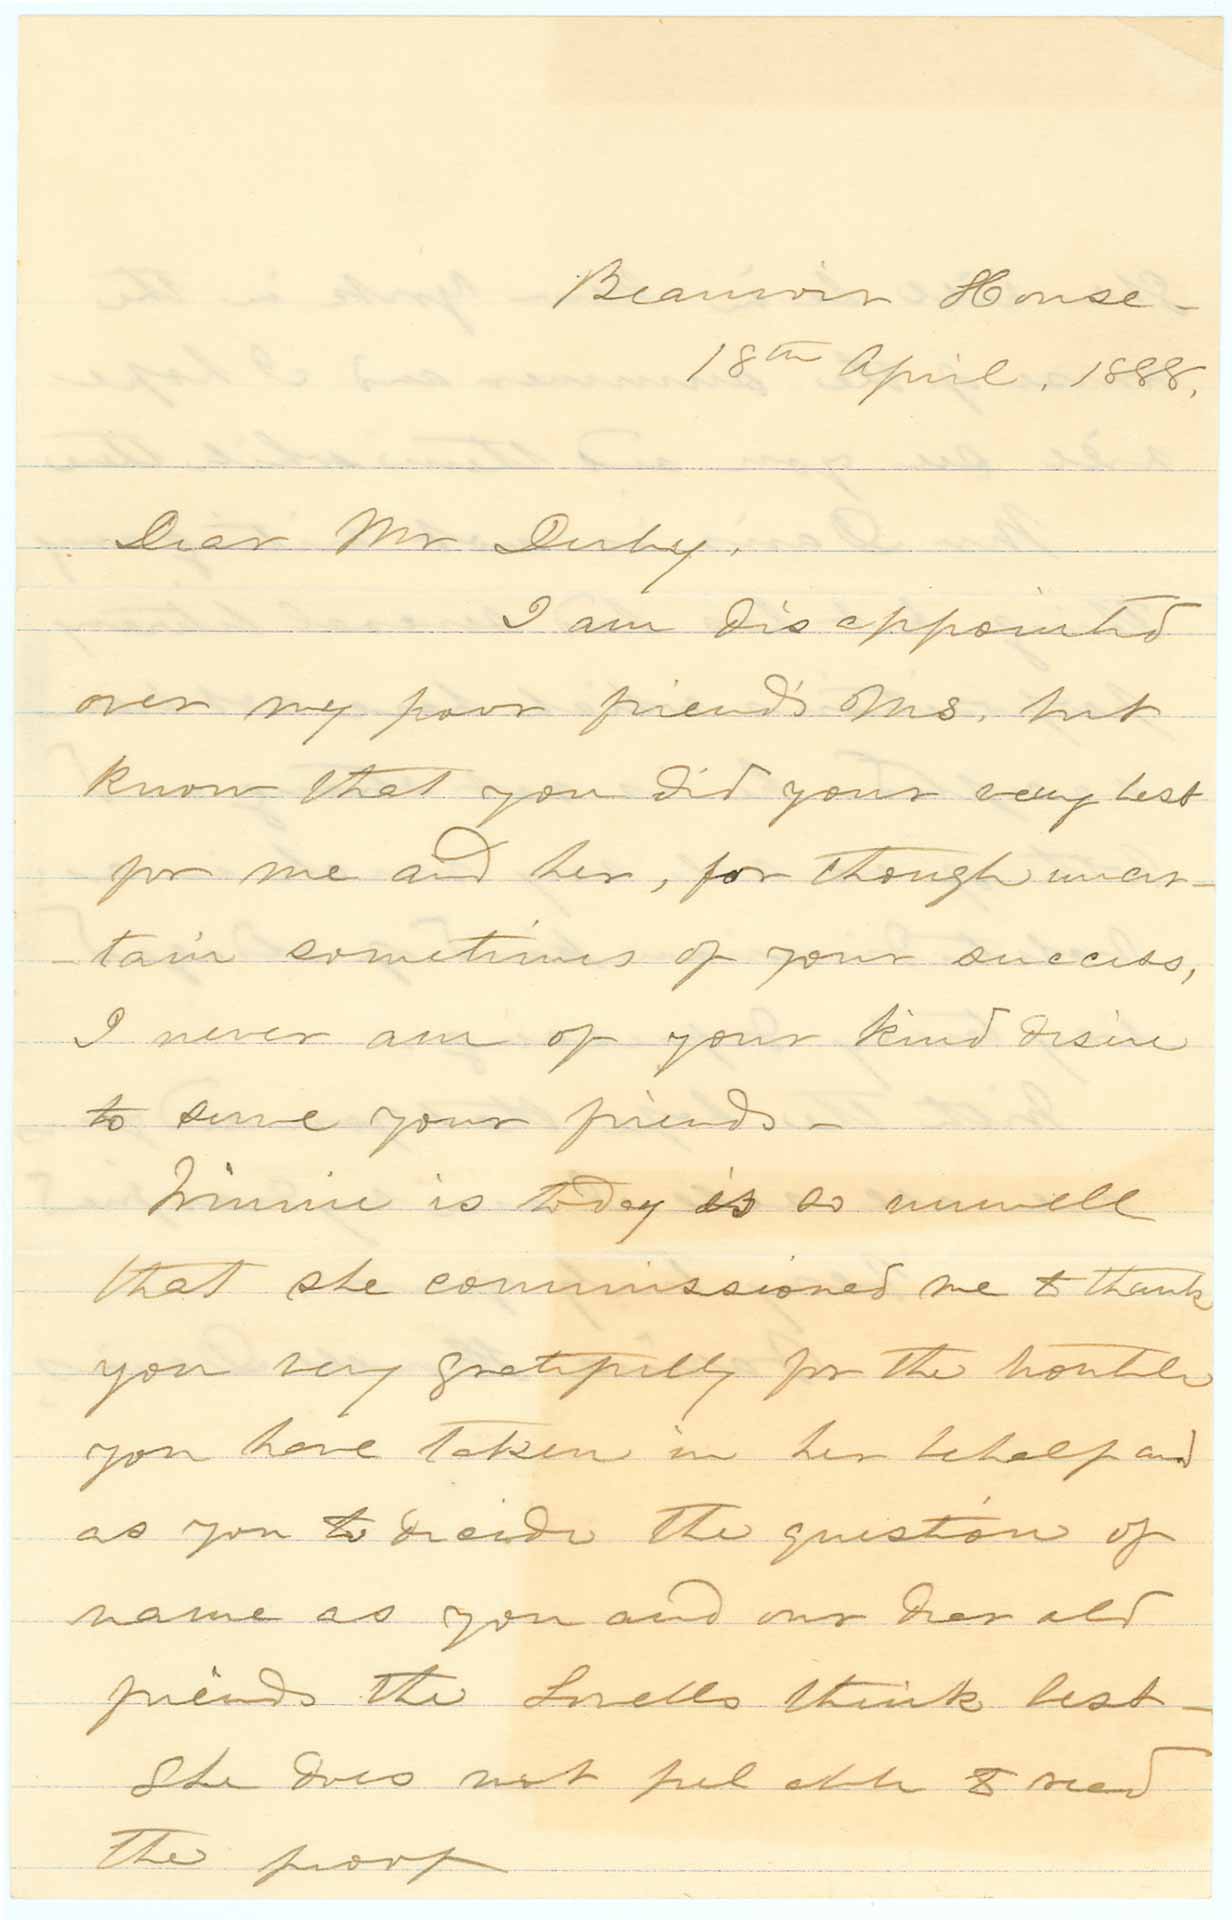 Beauvoir House -
18th April, 1888.
Dear Mr Derby,
I am disappointed
over my poor friend's MS. but
know that you did your very best
for me and her, for though uncer-
-tain sometimes of your success,
I never am of your kind desire
to serve your friends -
Winnie is today is so unwell
that she commissioned me to thank
you very gratefully for the trouble
you have taken in her behalf and
as you to decide the question of
name as you and our dear old
friends the Lovells think best -
She does not feel able to read
the proof